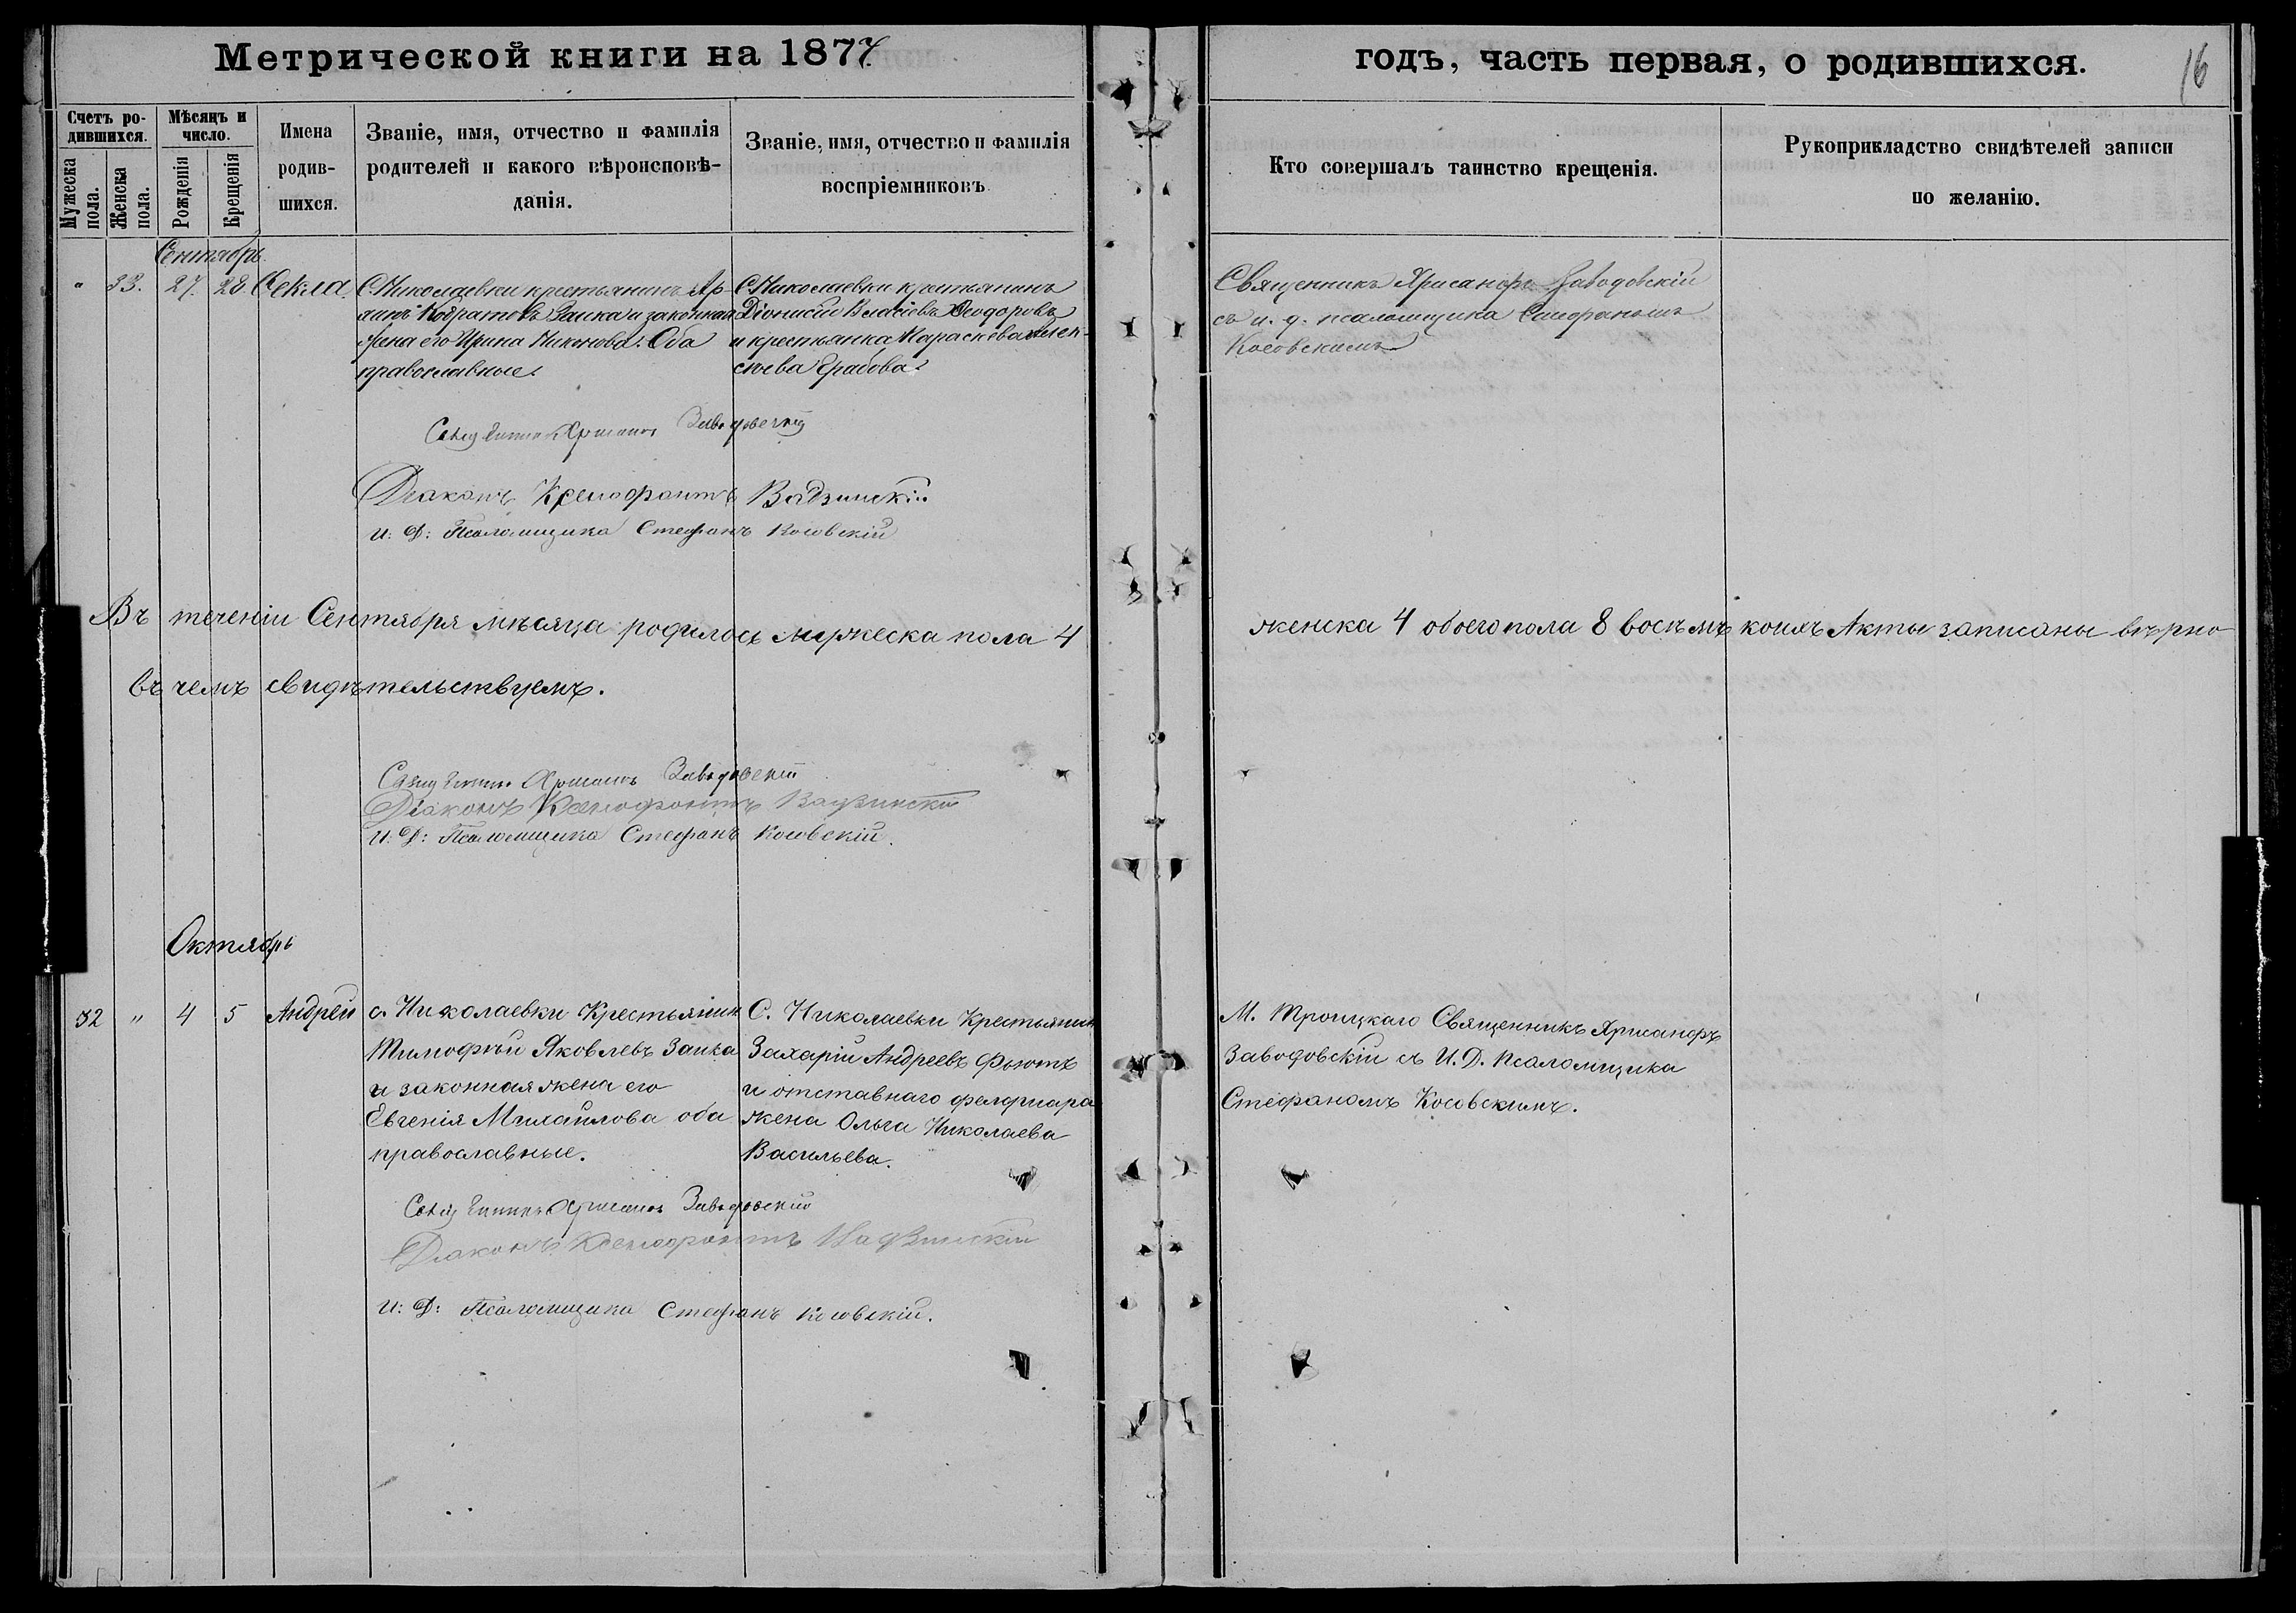 Метрической книги на 1877.
годъ, часть первая, о родившихся.
16
Счетъ ро-
дившихся.
Мѣсяцъ и
число.
Мужеска
пола.
Женска
пола.
Рожденія
Крещенія
Имена
родив-
шихся.
Званіе, имя, отчество и фамилія
родителей и какого вѣроисповѣ-
данія.
Званіе, имя, отчество и фамилія
воспріемниковъ
Кто совершалъ таинство крещенія.
Рукоприкладство свидѣтелей записи
по желанію.
Сентябрь.
" 33. 27. 28. Ѳекла.
С. Николаевки крестьянинъ
Заика и законная
жена его Ирина Никонова. Оба
православные.
С. Николаевки крестьянинъ
Діонисій Ѳеодоровъ
и крестьянка Параскева
Священникъ Хрисанфъ Заводовскій
съ и. д. псаломщика Стефаномъ
Косовскимъ
Священникъ Хрисанфъ Заводовскій
Діаконъ Ксенофонтъ Вадзинскій
И: Д: Псаломщика Стефанъ Косовскій
Въ теченіи Сентября мѣсяца родилось мужеска пола 4
женска 4 обоего пола 8 восемь коихъ Акты записаны вѣрно
въ чемъ свидѣтельствуемъ.
Священникъ Хрисанфъ Заводовскій
Діаконъ Ксенофонтъ Вадзинскій
И: Д: Псаломщика Стефанъ Косовскій.
Октябрь
32 " 4 5 Андрей
с. Николаевки Крестьянин
Тимофѣй Яковлевъ Заика
и законная жена его
Евгенія Михайлова оба
православные.
С. Николаевки Крестьянин
Захарій Андреевъ Фьютъ
и отставнаго
жена Ольга Николаева
Васильева.
М. Троицкаго Священникъ Хрисанфъ
Заводовскій съ И. Д. Псаломщика
Стефаномъ Косовскимъ.
Священникъ Хрисанфъ Заводовскій
Діаконъ Ксенофонтъ Вадзинскій
И: Д: Псаломщика Стефанъ Косовскій.